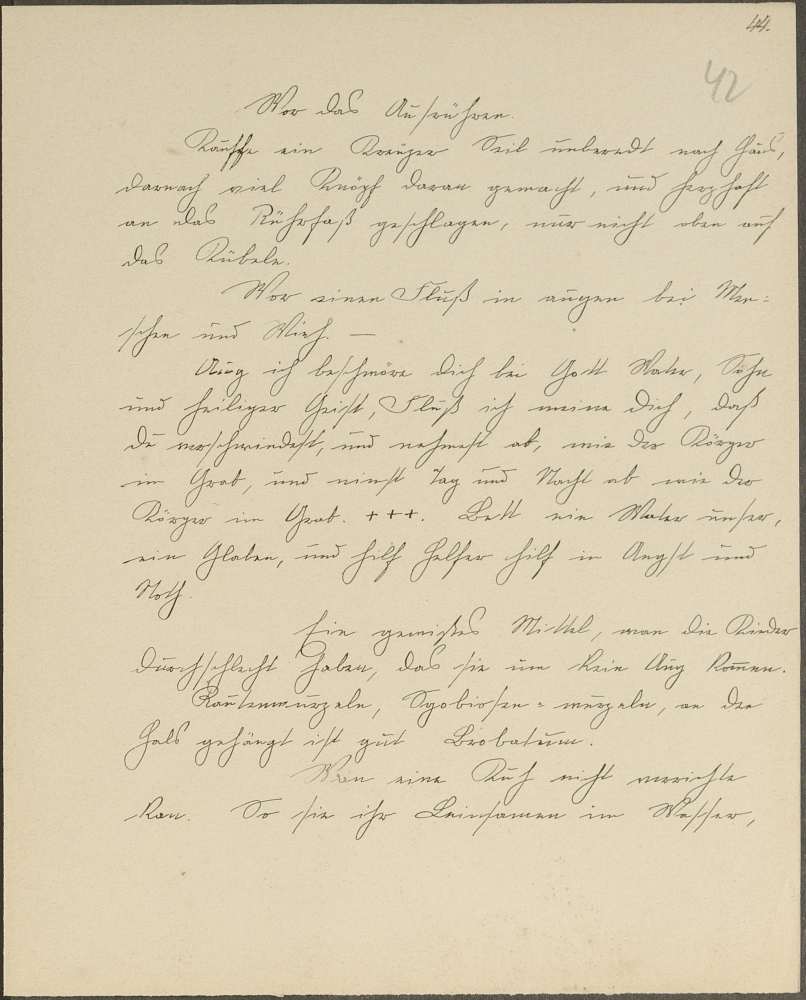 44.
42
Vor das Ausrühren.
Kauffe ein Kreuzer Seil unberedt nach Haus,
darnach viel Knöpf daran gemacht, und herzhaft
an das Rührfaß geschlagen, nur nicht oben auf
das Kübele.
Vor einen Fluß in augen bei Men-
schen und Vieh. —
Aug ich beschwöre dich bei Gott Vater, Sohn
und heiliger Geist, Fluß ich meine dich, daß
du verschwindest, und nehmest ab, wie der Körger
im Grab, und nimst Tag und Nacht ab wie der
Körger im Grab. +++. Bett ein Vater unser,
ein Glaben, und hilf Helfer hilf in Angst und
Noth.
Ein gewisses Mittel, wan die Kinder
durchschlecht haben, das sie um kein Aug kommen.
Rautenwurzeln, -wurzeln, an den
Hals gehängt ist gut Probatum.
Wan eine Kuh nicht verrichte
kan. So sie ihr Leinsamen im Wasser,